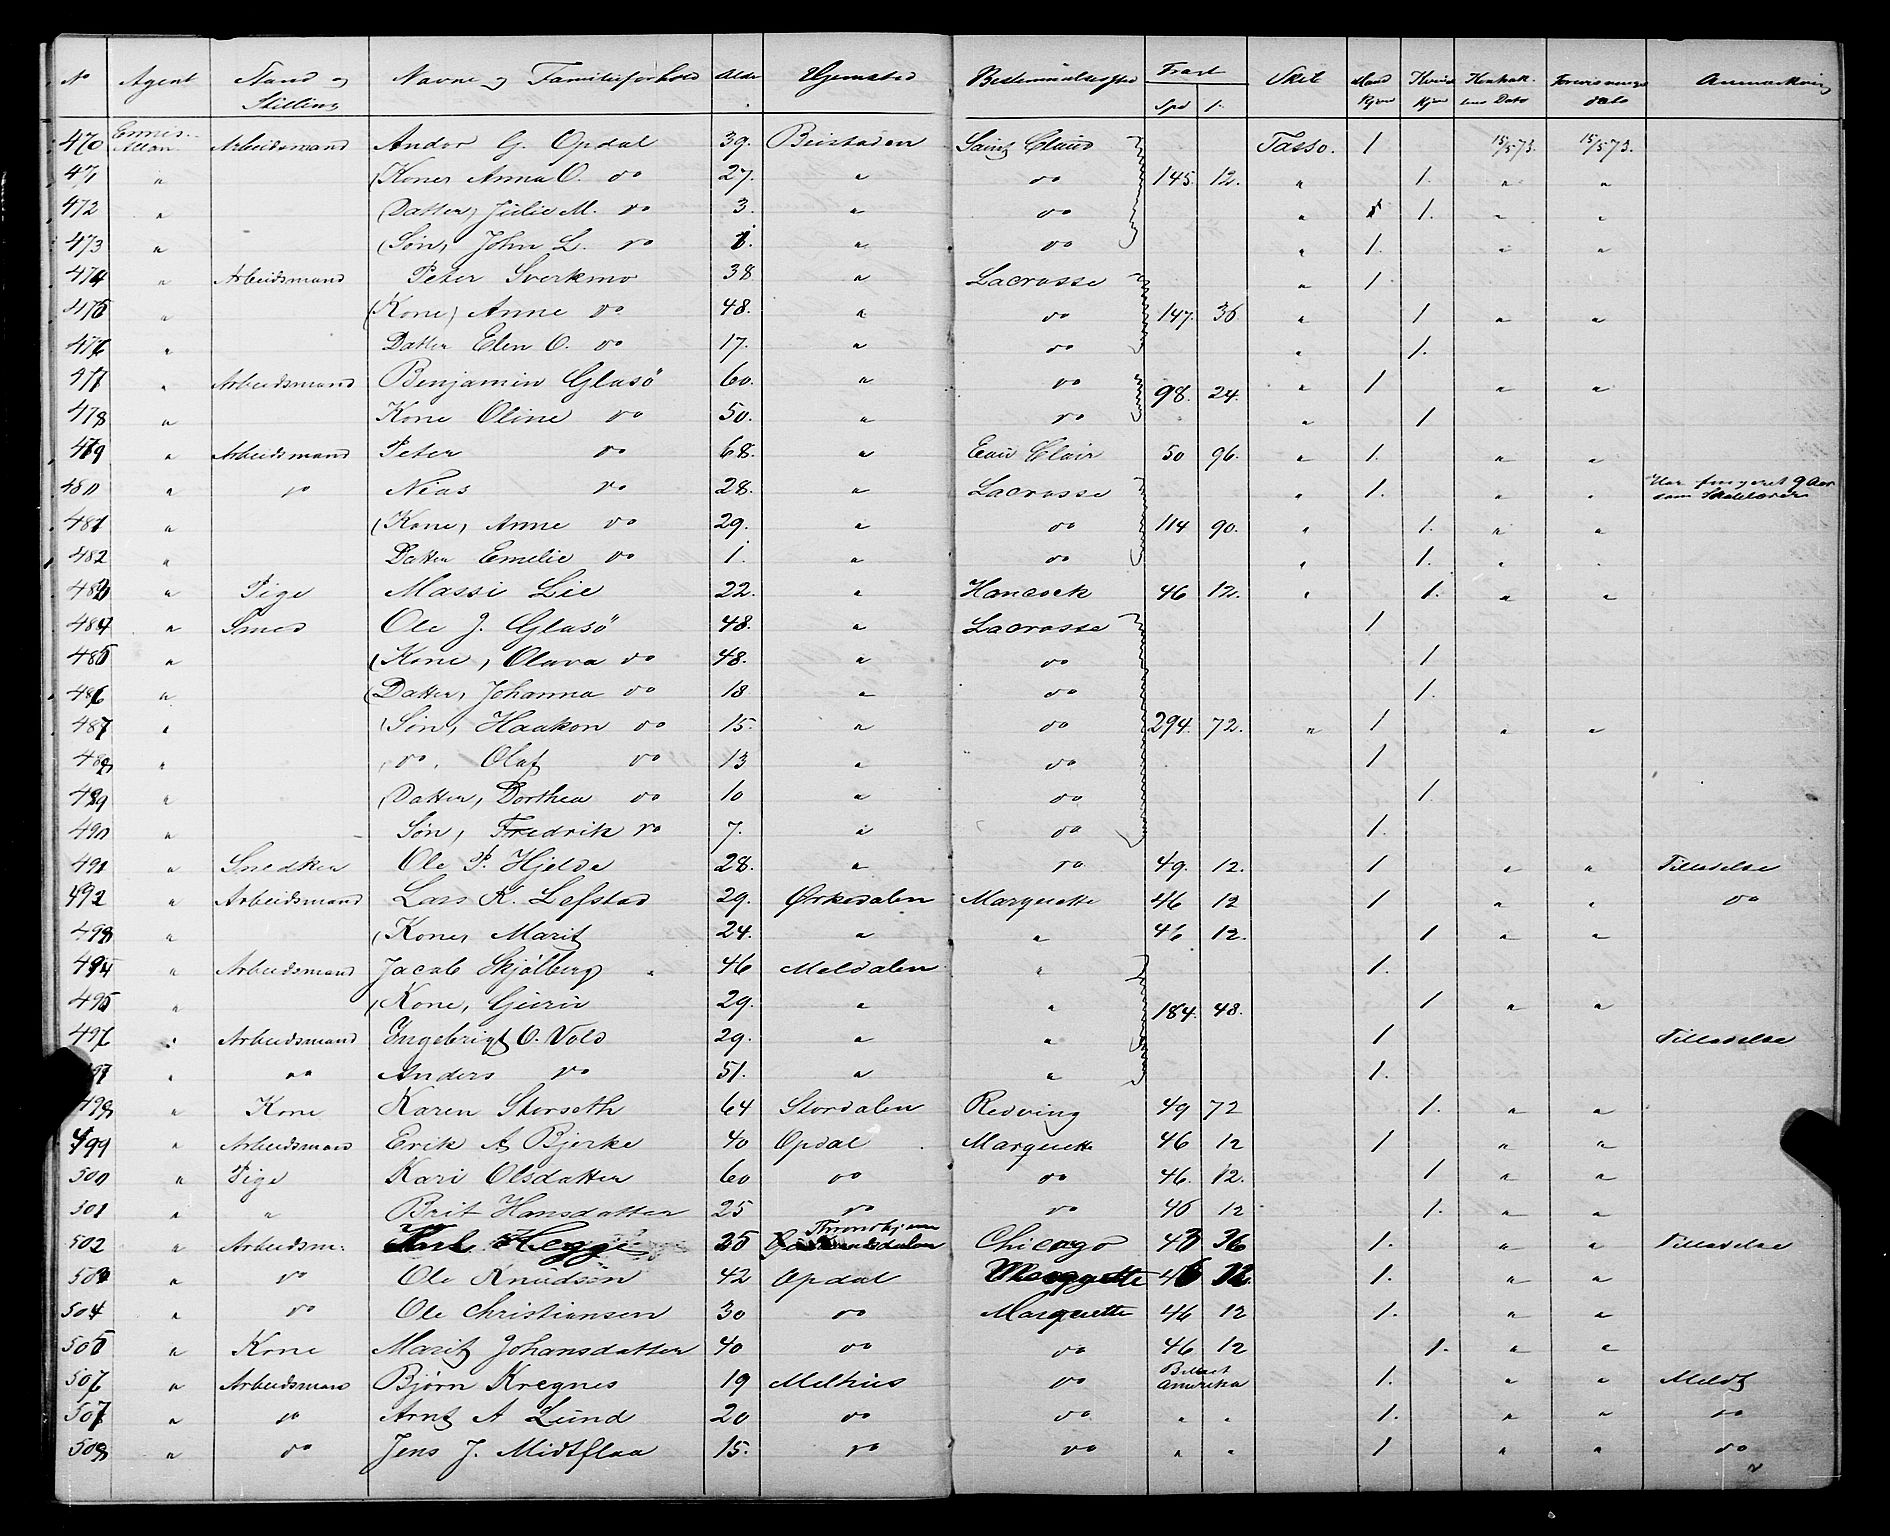 No Agent Stand og Stilling Navne og Familieforhold Alder Hjemsted Bestemmelsessted Fragt Spd s. Skib Mand Kjøn Kvinde Kjøn Kontraktens Dato Forevisnings dato Anmærkning
470 Arbeidsmand Andor G. Opdal 39. Beistaden Saint Cloud Tasso. 1 15/5 73. 15/5 73.
471 " (Kone) Anna O. do 27. " do 145. 12. " 1. " "
472 " (Datter) Julie M. do 3. " do " 1. " "
473 " (Søn) John L. do 1. " do " 1. " "
474 " Arbeidsmand Peter Sverkmo 38 " Lacrosse " 1
475 " (Kone) Anne do 48. " do 147. 36 " 1 " "
476 " Datter Elen O. do 17. " do " 1.
477 " Arbeidsmand Benjamin Glasö 60. " do 98. 24. " 1 " "
478 " Kone Oline do 50. " do " 1
479 " Arbeidsmand Peter do 68. " Eau Clair 50 96. " 1. " "
480 " do Nias do 28. " Lacrosse " 1. " " Har fungeret 9 Aar som Skolelærer
481 " (Kone, Anne do 29. " do 114 90. " 1. " "
482 " Datter Emelie do 1. " do " 1. "
483 " Pige Massi Lie 22. " Hancock 46 12. " 1. " "
484 " Smed Ole J. Glasö 48. " Lacrosse 1
485 " (Kone, Olava do 48. " do 1
486 " (Datter, Johanna do 18 " do 1.
487 " (Søn, Haakon do 15. " do 294. 72. " 1 " "
488 " do. Olaf do 13 " do 1
489 " (Datter, Dorthea do 10 " do 1.
490 " Søn, Fredrik do 7. " do 1.
491 " Snedker Ole P. Hjelde 28. " do 49. 12. 1 " " Tilladelse
492 " Arbeidsmand Lars K. Lefstad 29. Ørkedalen Marquette 46 12 1 " " do
493 " (Kone, Marit 24. " " 46 12. 1 " "
494 " Arbeidsmand Jacob Skjølberg " 46 Meldalen " 1.
495 " (Kone, Guri 29. " " 184. 48. 1 " "
496 " Arbeidsmand Ingebrigt O. Vold 29. " " 1 Tilladelse
497 " do Anders do 51. " " 1.
498 " Kone Karen Storseth 64 Stordalen Redving 49 72 1. " "
499 " Arbeidsmand Erik A Bjerke 40 Opdal Marquette 46 12 1 " "
500 " Pige Kari Olsdatter 60 do do 46. 12. 1 " "
501 " " Brit Hansdatter 25 do do 46 12 1. " "
502 " Arbeidsm. Karl Hegge 25 Throndhjem Chicago 43 36 1. " " Tilladelse
503 " do Ole Knudsen 42 Opdal Marquette 46 12 1. " "
504 " do Ole Christiansen 30 do Marquette 46 12 1. " "
505 " Kone Marit Johansdatter 40 do do 46 12 1. " "
506 " Arbeidsmand Bjørn Kregnes 19 Melhus do Billet Amerika 1. " " Meldt
507 " do Arnt A Lund 20 do do " " 1. " " do
508 " do Jens J. Midtflaa 15. do do " " 1 " " do